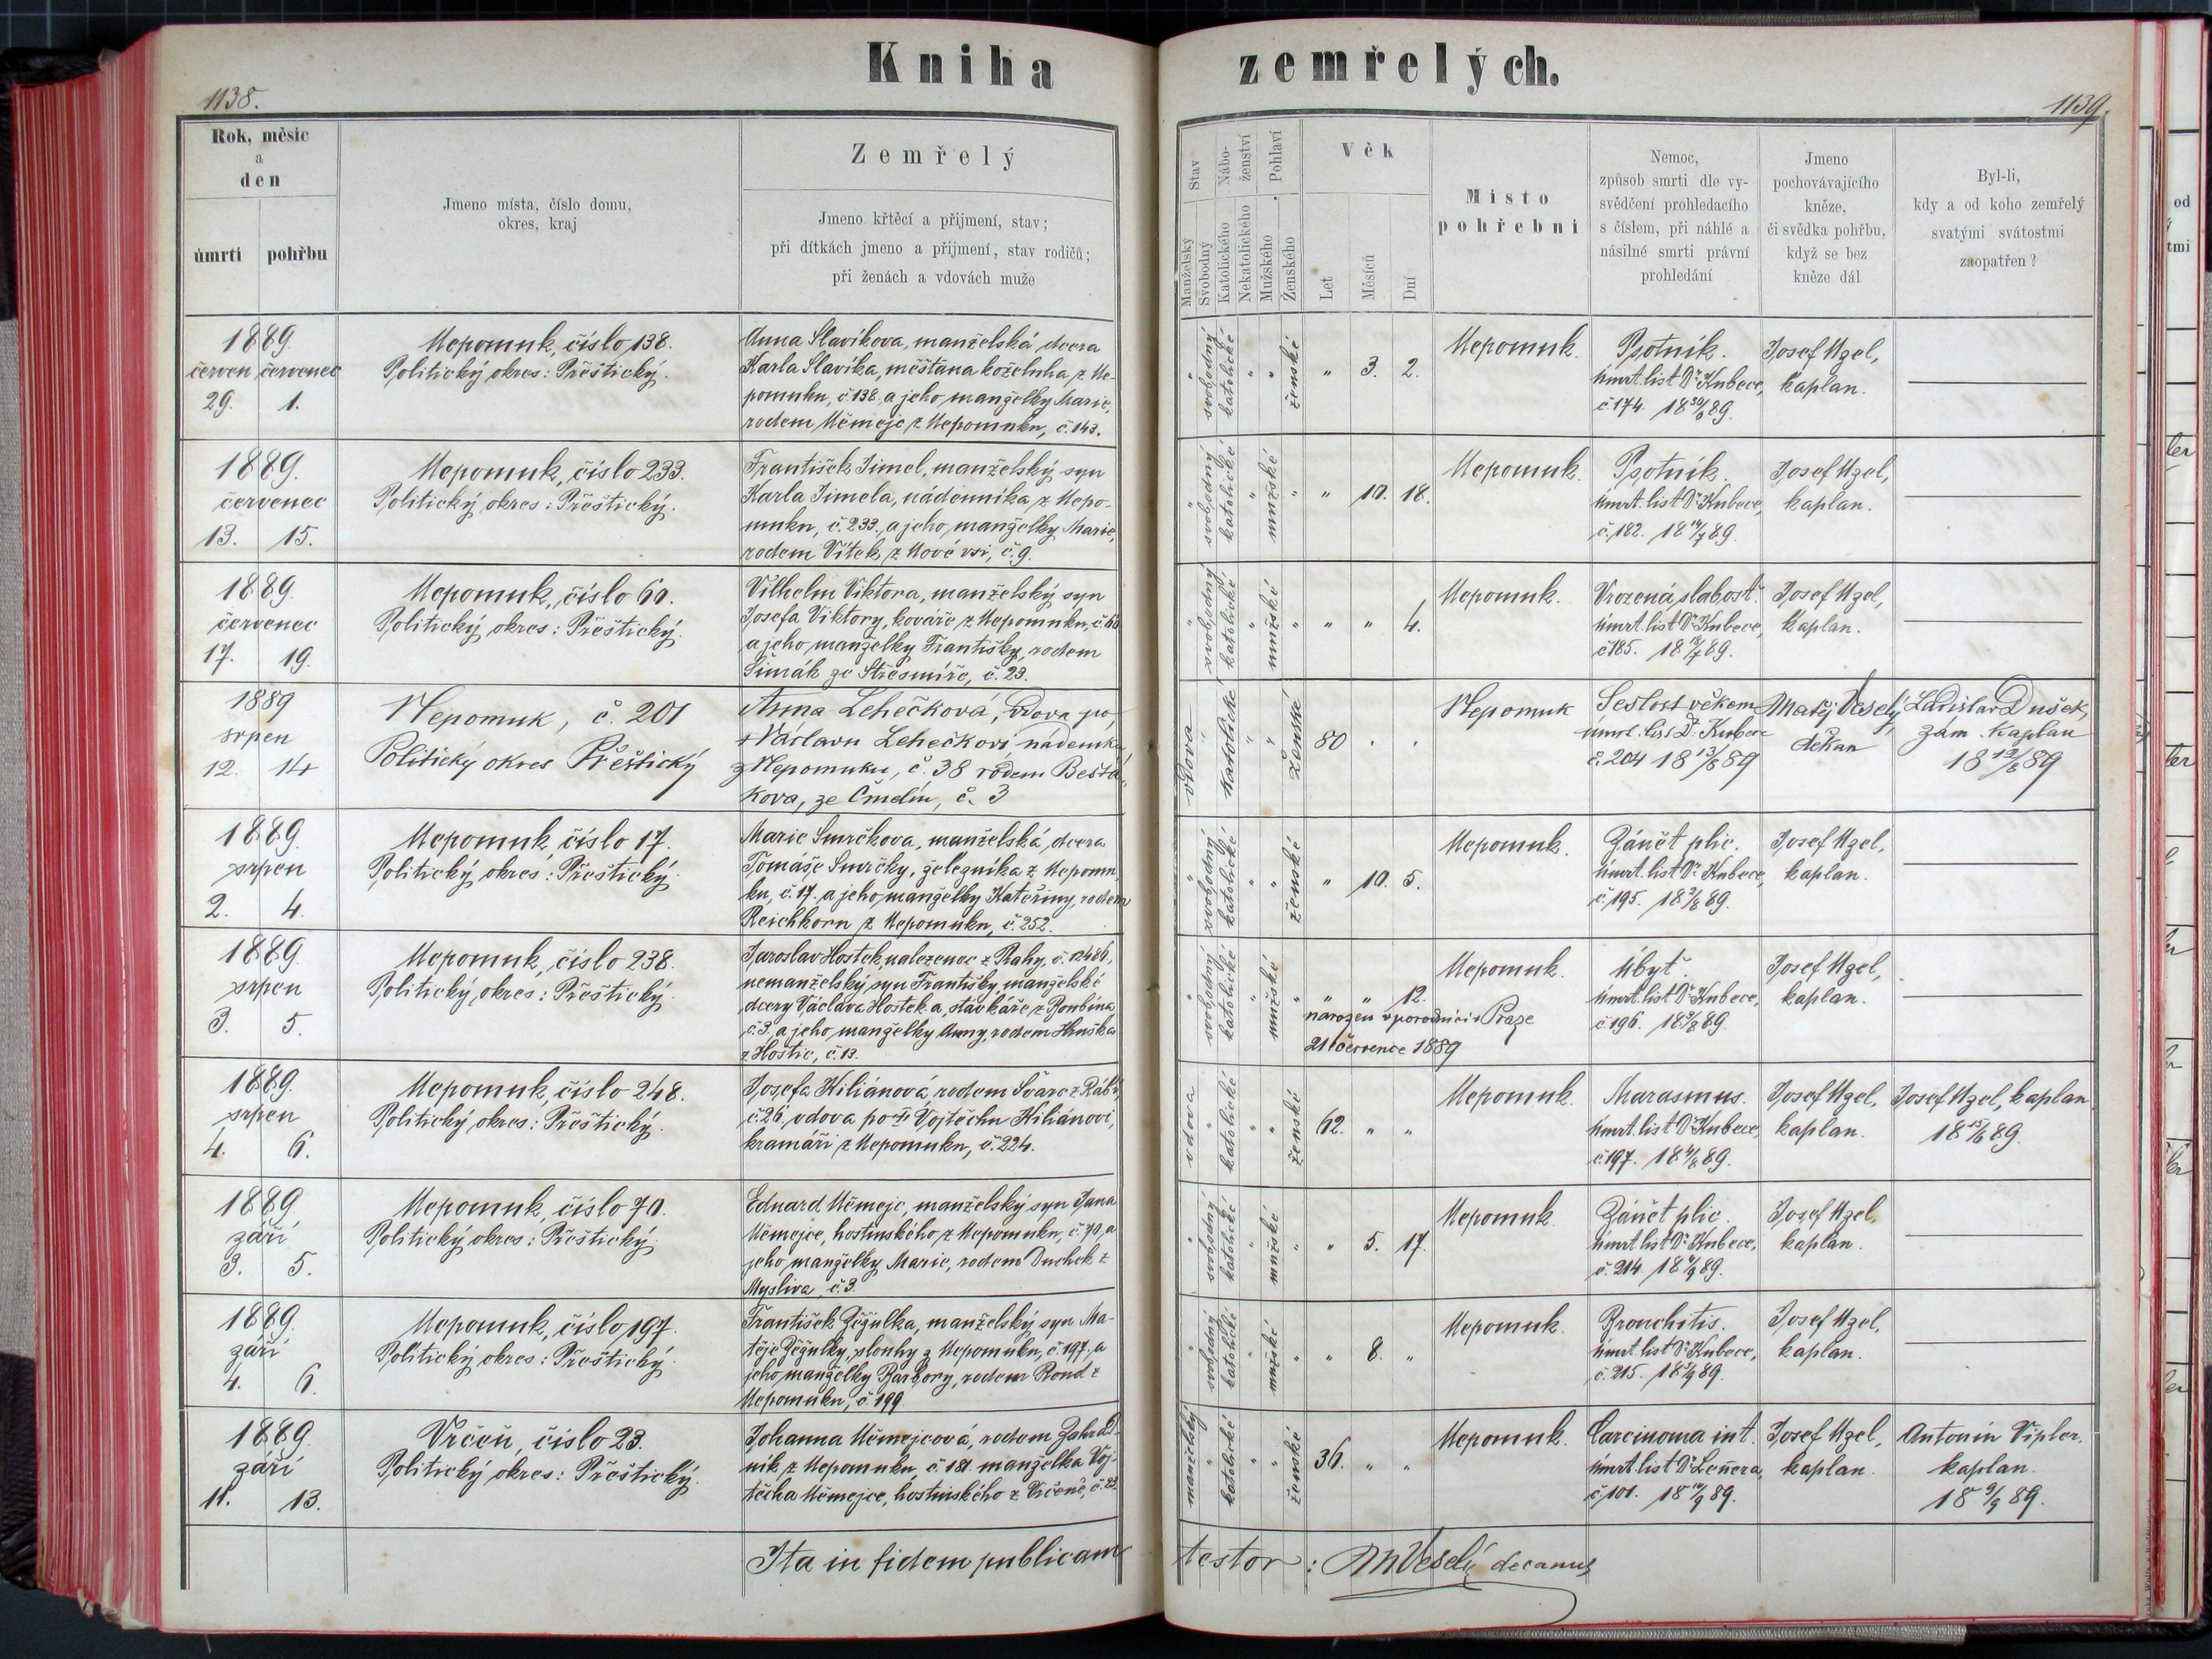 Kniha zemřelých.
1138.
1139.
Rok, měsíc
a
den
úmrtí pohřbu
Jmeno místa, číslo domu,
okres, kraj
Zemřelý
Jmeno křtěcí a přijmení, stav;
při dítkách jmeno a přijmení, stav rodičů;
při ženách a vdovách muže
Stav
Manželský
Svobodný
Nábo-
ženství
Katolického
Nekatolického
Pohlaví
Mužského
Ženského
Věk
Let
Měsíců
Dní
Místo
pohřební
Nemoc,
způsob smrti dle vy-
svědčení prohledacího
s číslem, při náhlé a
násilné smrti právní
prohledání
Jmeno
pochovávajícího
kněze,
či svědka pohřbu,
když se bez
kněze dál
Byl-li,
kdy a od koho zemřelý
svatými svátostmi
zaopatřen?
1889.
červen červenec
29. 1.
Nepomuk, číslo 138.
Politický okres: Přeštický.
Anna Slavíkova, manželská dcera
Karla Slavíka, měšťana koželuha z Ne-
pomuku, č. 138. a jeho manželky Marie,
rodem Němejc z Nepomuku, č. 143.
" svobodný katolické " " ženské
" 3. 2.
Nepomuk.
Psotník.
úmrt. list Dr Kubece,
č. 174. 18 30/6 89.
Josef Uzel,
kaplan.
1889.
červenec
13. 15.
Nepomuk, číslo 233.
Politický okres: Přeštický.
František Simel, manželský syn
Karla Simela, nádenníka z Nepo-
muku, č. 233., a jeho manželky Marie,
rodem Vítek z Nové vsi, č. 9.
" svobodný katolické " mužské "
" 10. 18.
Nepomuk.
Psotník.
úmrt. list Dr Kubece,
č. 182. 18 14/7 89.
Josef Uzel,
kaplan.
1889.
červenec
17. 19.
Nepomuk, číslo 60.
Politický okres: Přeštický.
Vilhelm Viktora, manželský syn
Josefa Viktory, kováře z Nepomuku, č. 60
a jeho manželky Františky, rodem
Šimák ze Střesmíře, č. 23.
" svobodný katolické " mužské "
" " 4.
Nepomuk.
Vrozená slabosť.
úmrt. list Dr Kubece,
č. 185. 18 18/7 89.
Josef Uzel,
kaplan.
1889
srpen
12. 14
Nepomuk, č. 201
Politický okres Přeštický
Anna Lehečková, vdova po
† Václavu Lehečkovi nádenníku
z Nepomuku, č. 38 rodem Bešťá-
kova, ze Čmelín, č. 3
vdova " katolické " " ženské
80 . .
Nepomuk
Sešlost věkem
úmrt. list Dr Kubece
č. 204 18 13/8 89
Matěj Veselý
děkan
Ladislav Dušek,
zám. kaplan
18 12/8 89
1889.
srpen
2. 4.
Nepomuk, číslo 17.
Politický okres: Přeštický.
Marie Smrčkova, manželská dcera
Tomáše Smrčky, železníka z Nepomu-
ku, č. 17. a jeho manželky Kateřiny, rodem
Reichkorn z Nepomuku, č. 252.
" svobodný katolické " " ženské
" 10. 5.
Nepomuk.
Zánět plic.
úmrt. list Dr Kubece,
č. 195. 18 3/8 89.
Josef Uzel,
kaplan.
1889.
srpen
3. 5.
Nepomuk, číslo 238.
Politický okres: Přeštický.
Jaroslav Hostek, nalezenec z Prahy, č. 12486,
nemanželský syn Františky, manželské
dcery Václava Hosteka, stávkáře z
č. 3. a jeho manželky Anny, rodem Hruška
z Hostic, č. 13.
" svobodný katolické " mužské "
" " 12.
narozen v porodnici v Praze
21 července 1889
Nepomuk.
Úbyť.
úmrt. list Dr Kubece,
č. 196. 18 3/8 89.
Josef Uzel,
kaplan.
1889.
srpen
4. 6.
Nepomuk, číslo 248.
Politický okres: Přeštický.
Josefa Kiliánová, rodem Švarc z Rábí,
č. 26. vdova po † Vojtěchu Kiliánovi,
kramáři z Nepomuku, č. 224.
vdova " katolické " " ženské
62. " "
Nepomuk.
Marasmus.
úmrt. list Dr Kubece,
č. 197. 18 4/8 89.
Josef Uzel,
kaplan.
Josef Uzel, kaplan
18 15/6 89.
1889.
září
3. 5.
Nepomuk, číslo 70.
Politický okres: Přeštický.
Eduard Němejc, manželský syn Jana
Němejce, hostinského z Nepomuku, č. 70, a
jeho manželky Marie, rodem Duchek z
Myslíva, č. 3.
" svobodný katolické " mužské "
" 5. 17.
Nepomuk.
Zánět plic.
úmrt. list Dr Kubece,
č. 214. 18 4/9 89.
Josef Uzel,
kaplan.
1889.
září
4. 6.
Nepomuk, číslo 197.
Politický okres: Přeštický.
František Žežulka, manželský syn Ma-
těje Žežulky, slouhy z Nepomuku, č. 197, a
jeho manželky Barbory, rodem Rond z
Nepomuku, č. 199.
" svobodný katolické " mužské "
" 8. "
Nepomuk.
Bronchitis.
úmrt. list Dr Kubece,
č. 215. 18 5/9 89.
Josef Uzel,
kaplan.
1889.
září
11. 13.
Vrčeň, číslo 23.
Politický okres: Přeštický.
Johanna Němejcová, rodem Zahrad-
ník z Nepomuku, č. 181. manželka Voj-
těcha Němejce, hostinského z Vrčeně, č. 23
manželský " katolické " " ženské
36. " "
Nepomuk.
Carcinoma int.
úmrt. list Dr Leñera,
č. 101. 18 12/9 89.
Josef Uzel,
kaplan.
Antonín Vipler.
kaplan.
18 9/9 89.
Ita in fidem publicam testor: MVeselý decanus